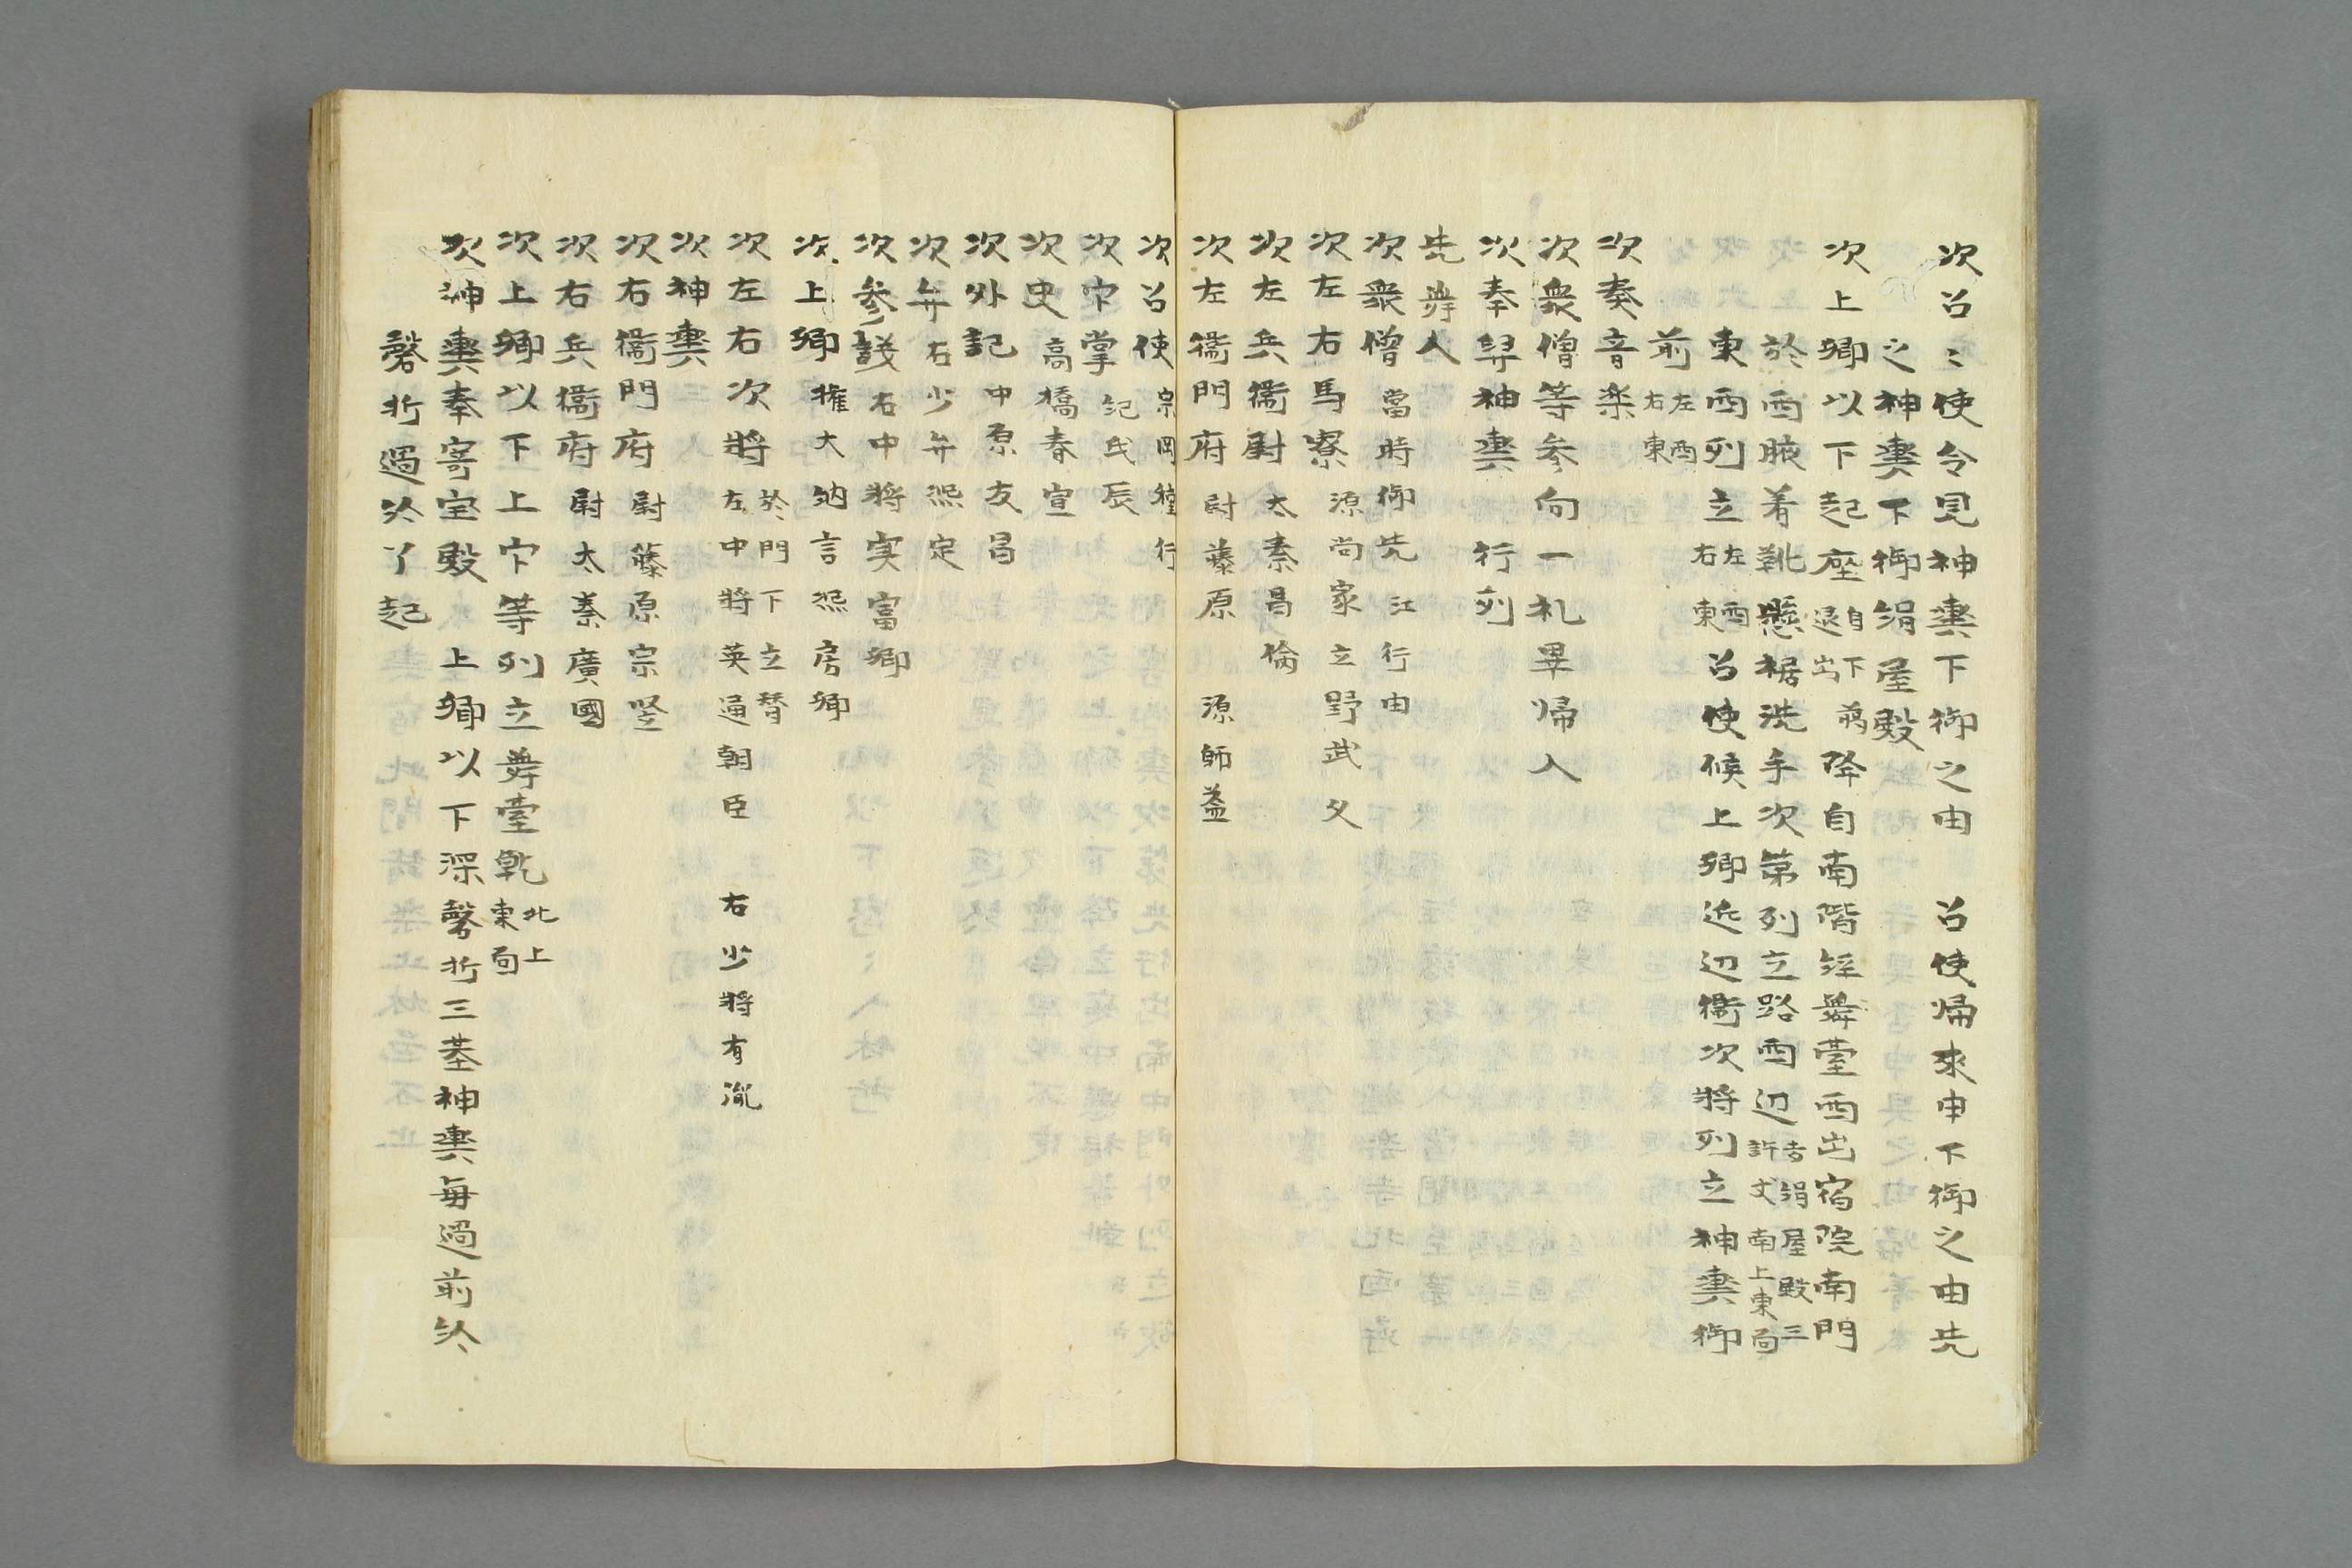 次召〻使令見神輿下御之由　召使帰来申下御之由先
之神輿下御絹屋殿
次上卿以下起座自下萬退出降自南階経舞臺西出宿院南門
於西腋着靴懸裾洗手次第列立路西辺去絹屋殿三許丈南上東面
東西列立左西右東召使候上卿近辺衛次将列立神輿御
前左西右東
次奏音楽
次衆僧等参向一礼畢帰入
次奉舁神輿行列
先舞人
次衆僧當時御先江行由
次左右馬寮源尚家立野武夂
次左兵衛尉太秦昌倫
次左衛門府尉藤原　源師益
次召使宗岡行
次官掌紀氏辰
次史高橋春宣
次外記中原友昌
次弁右少弁熙定
次参議右中将実富卿
次上卿権大納言熙房卿
次左右次将於門下立替左中将英通朝臣　右少将有胤
次神輿
次右衛門府尉藤原宗竪
次右兵衛府尉太秦廣國
次上卿以下上官等列立舞臺乾北上東面
次神輿奉寄宝殿　上卿以下深磬折三基神輿毎過前給
磬折過給了起